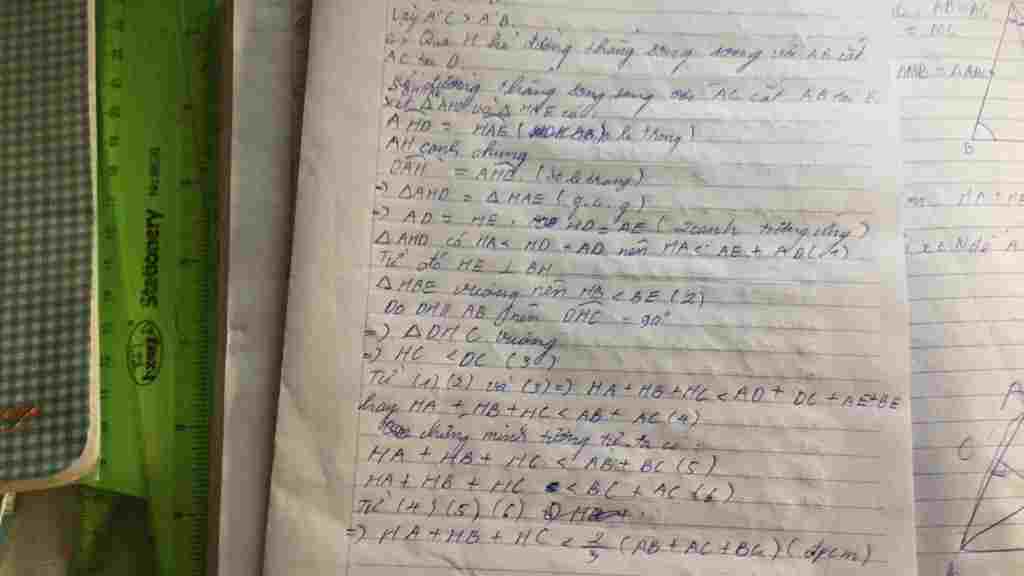 Vậy A'C > A'B.
Qua H kẻ đường thẳng song song với AB cắt
AC tại D.
đường thẳng song song với AC cắt AB tại E.
Xét ΔAHD và ΔHAE có
AHD = HAE ( so le trong)
AH cạnh chung
DAH = AHE (so le trong)
=> ΔAHD = ΔHAE (g.c.g)
=> AD = HE ; HD = AE (2 cạnh tương ứng)
ΔAHD có HA < HD + AD nên HA < AE + AD (1)
Từ đó HE ⊥ BH
ΔHBE vuông nên HB < BE (2)
Do DH // AB nên DHC = 90°
=> ΔDHC vuông
=> HC < DC (3)
Từ (1) (2) và (3) => HA + HB + HC < AD + DC + AE + BE
hay HA + HB + HC < AB + AC (4)
chứng minh tương tự ta có :
HA + HB + HC < AB + BC (5)
HA + HB + HC < BC + AC (6)
Từ (4) (5) (6)
=> HA + HB + HC < 2/3 (AB + AC + BC) (đpcm)
Stationery